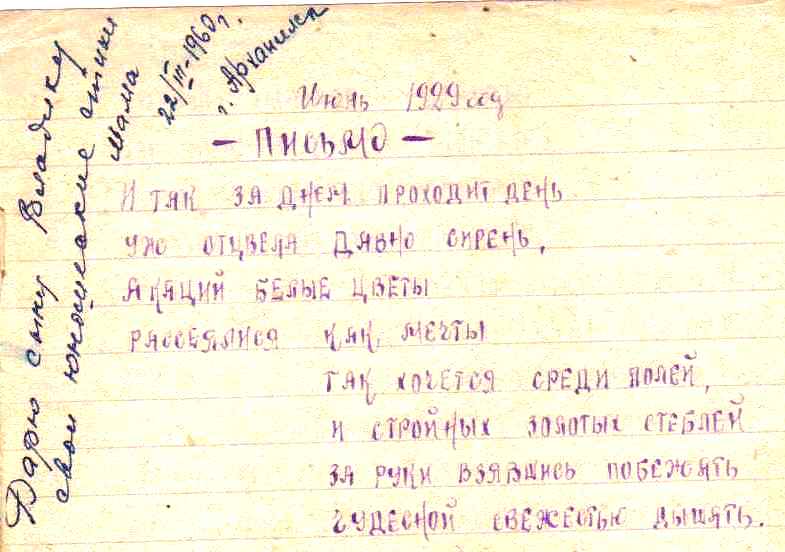 Дарю сыну Владику
свои юношеские стихи
мама
22/III-1960 г.
г. Архангельск
Июнь 1929 год
— Письмо —
И так за днем проходит день
уж отцвела давно сирень,
Акаций белые цветы
рассеялися как мечты
так хочется среди полей,
и стройных золотых стеблей
за руки взявшись побежать
чудесной свежестью дышать.